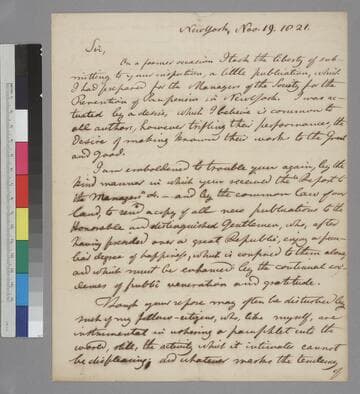 New York, Nov. 19. 1821.
Sir,
On a former occasion I took the liberty of sub-
mitting to your inspection, a little publication, which
I had prepared for the Managers of the Society for the
Prevention of Pauperism in New York. I was ac-
tuated by a desire, which I believe is common to
all authors, however trifling their performances, the
desire of making known their works to the Great
and good.
I am emboldened to trouble you again by the
kind manner in which you received the Report to
the Managers &c - and by the common law of our
land, to send a copy of all new publications to the
Honorable and distinguished Gentlemen, who, after
having presided over a great Republic, enjoy a pecu-
liar degree of happiness, which is confined to them alone,
and which must be enhanced by the continual evi-
dences of public veneration and gratitude.
Though your repose may often be disturbed by
such of my fellow-citizens, who, like myself, are
instrumental in ushering a pamphlet into the
world, still, the activity which it intimates cannot
be displeasing; and whatever marks the tendency
of